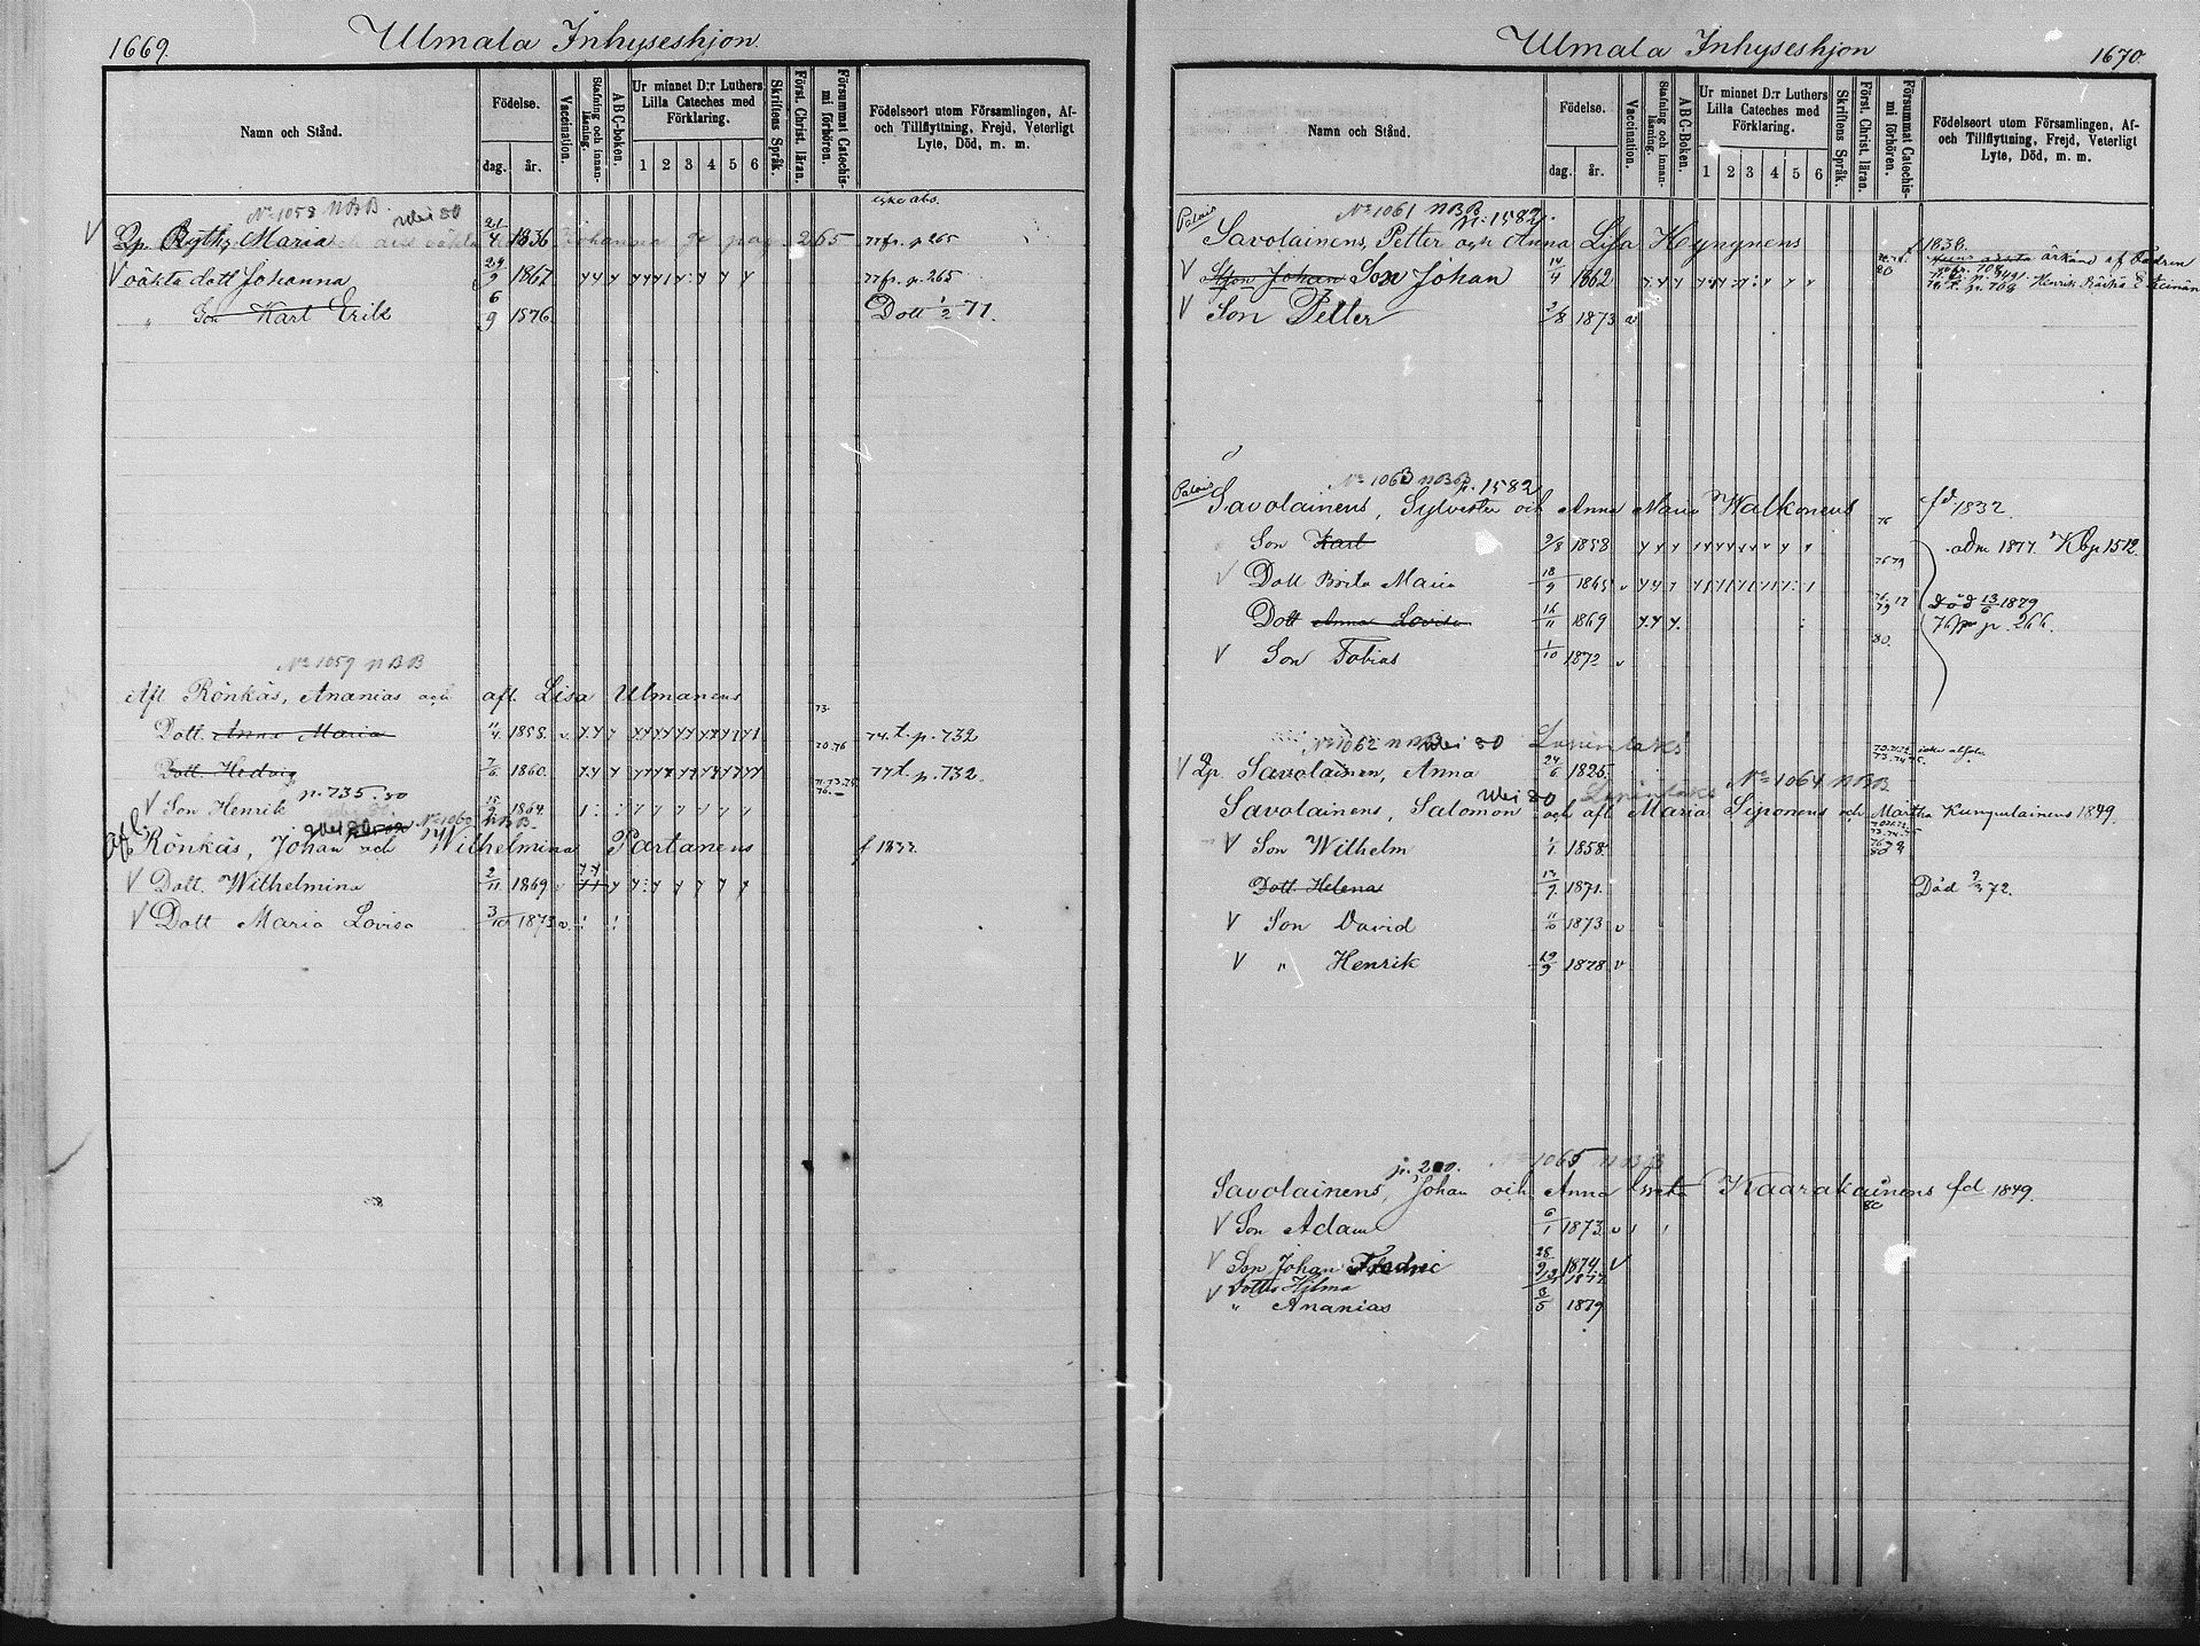 1669.
Ulmala Inhyseshjon
Namn och Stånd.
Födelse.
dag. år.
Vaccination.
Stafning och innanläsning.
ABC-boken.
Ur minnet D:r Luthers Lilla Cateches med Förklaring.
1 2 3 4 5 6
Skriftens Språk.
Först. Christ. läran.
Försummat Catechismi förhören.
Födelseort utom Församlingen, Af- och Tillflyttning, Frejd, Veterligt Lyte, Död, m. m.
No 1058 NBB
V Qp. Ryth, Maria 21/4 1836 77 fr. p 265
V oäkta dott Johanna 24/9 1867 77 fr. p. 265
" Son Karl Erik 6/9 1876 Dött 1/2 77.
No 1059 NBB
Afl Rönkäs, Ananias och afl. Lisa Ulmanens
73.
Dott. Anna Maria 11/4 1858. v. 74. t. p. 732
70.76
Dott. Hedvig 7/6 1860. 77 t. p. 732.
p. 735. 80
V Son Henrik 15/9 1864.
No 1060 NBB
afl. Rönkäs, Johan och Wilhelmina Partanens f 1837
V Dott. Wilhelmina 2/11 1869
V Dott Maria Lovisa 3/10 1873 v.
1670.
Ulmala Inhyseshjon
Namn och Stånd.
Födelse.
dag. år.
Vaccination.
Stafning och innanläsning.
ABC-Boken.
Ur minnet D:r Luthers Lilla Cateches med Förklaring.
1 2 3 4 5 6
Skriftens Språk.
Först. Christ. läran.
Försummat Catechismi förhören.
Födelseort utom Församlingen, Af- och Tillflyttning, Frejd, Veterligt Lyte, Död, m. m.
No 1061 NBB p. 1582.
Savolainens, Petter och Anna Lisa Hynynens f 1838.
V Son Johan Son Johan 14/4 1862 80
V Son Petter 2/8 1873 v
No 1063 NBB p. 1582
Savolainens, Sylvester och Anna Maria Walkonens fd 1832.
76
Son Karl 9/8 1858 adm 1877. Kbp 1512.
76 79
V Dott Brita Maria 18/9 1865 v
Dott Anna Lovisa 16/11 1869 död 13/6 1879
p. 266.
80.
V Son Tobias 1/10 1872 v
No 1062 NBB
V Qp. Savolainen, Anna 24/6 1825.
No 1064 NBB
Savolainens, Salomon och afl Maria Siponens och Martha Kumpulainens 1849.
V Son Wilhelm 1/1 1858.
Dott. Helena 13/9 1871. Död 2/3 72.
V Son David 11/10 1873 v
V " Henrik 19/9 1878 v
p. 200. No 1065 NBB
Savolainens, Johan och Anna Greta Kaarakainens fd 1849.
80
V Son Adam 6/1 1873 v
V Son Johan Fredric 28/9 1874. V
V Dotter Hilma 1877
" Ananias 3/5 1879